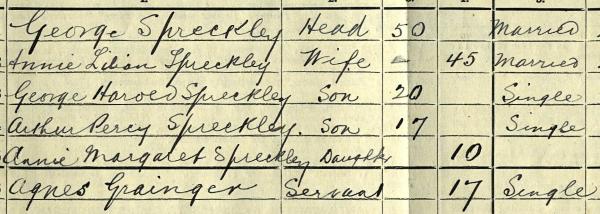 George Spreckley Head 50 Married
Annie Lilian Spreckley Wife - 45 Married
George Harold Spreckley Son 20 Single
Arthur Percy Spreckley. Son 17 Single
Annie Margaret Spreckley Daughter 10
Agnes Grainger Servant 17 Single